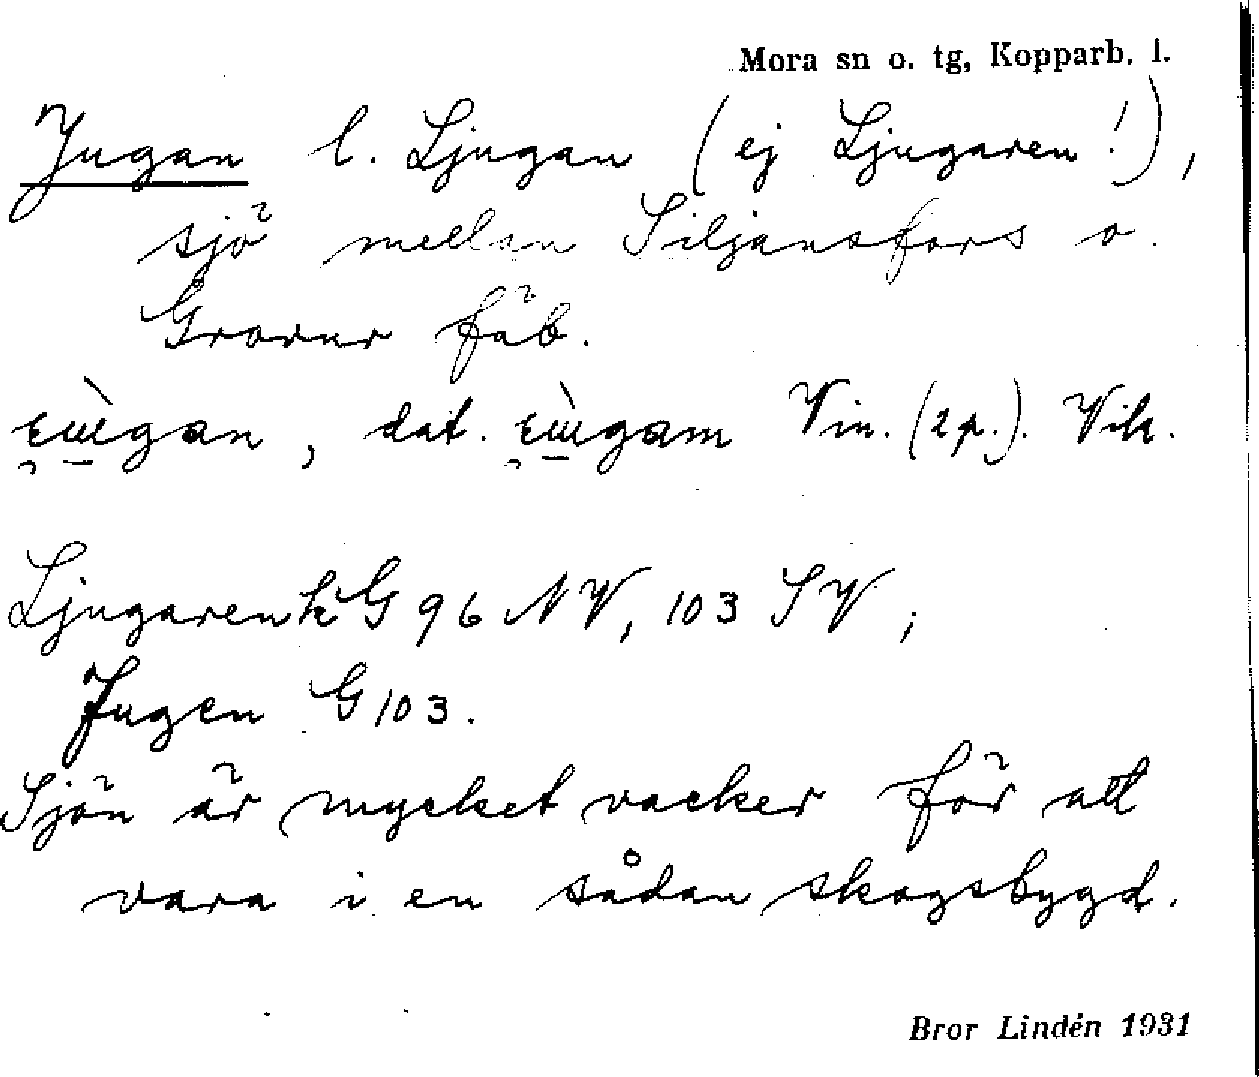 Mora sn o. tg, Kopparb. l.
Jugan l. Ljugan (ej Ljugaren!),
sjö mellan Siljansfors o.
Grovur fäb.
dat. Vin. (2 p.). Vik.
Ljugaren k G 96 NV, 103 SV;
Jugen G 103.
Sjön är mycket vacker för att
vara i en sådan skogsbygd.
Bror Lindén 1931